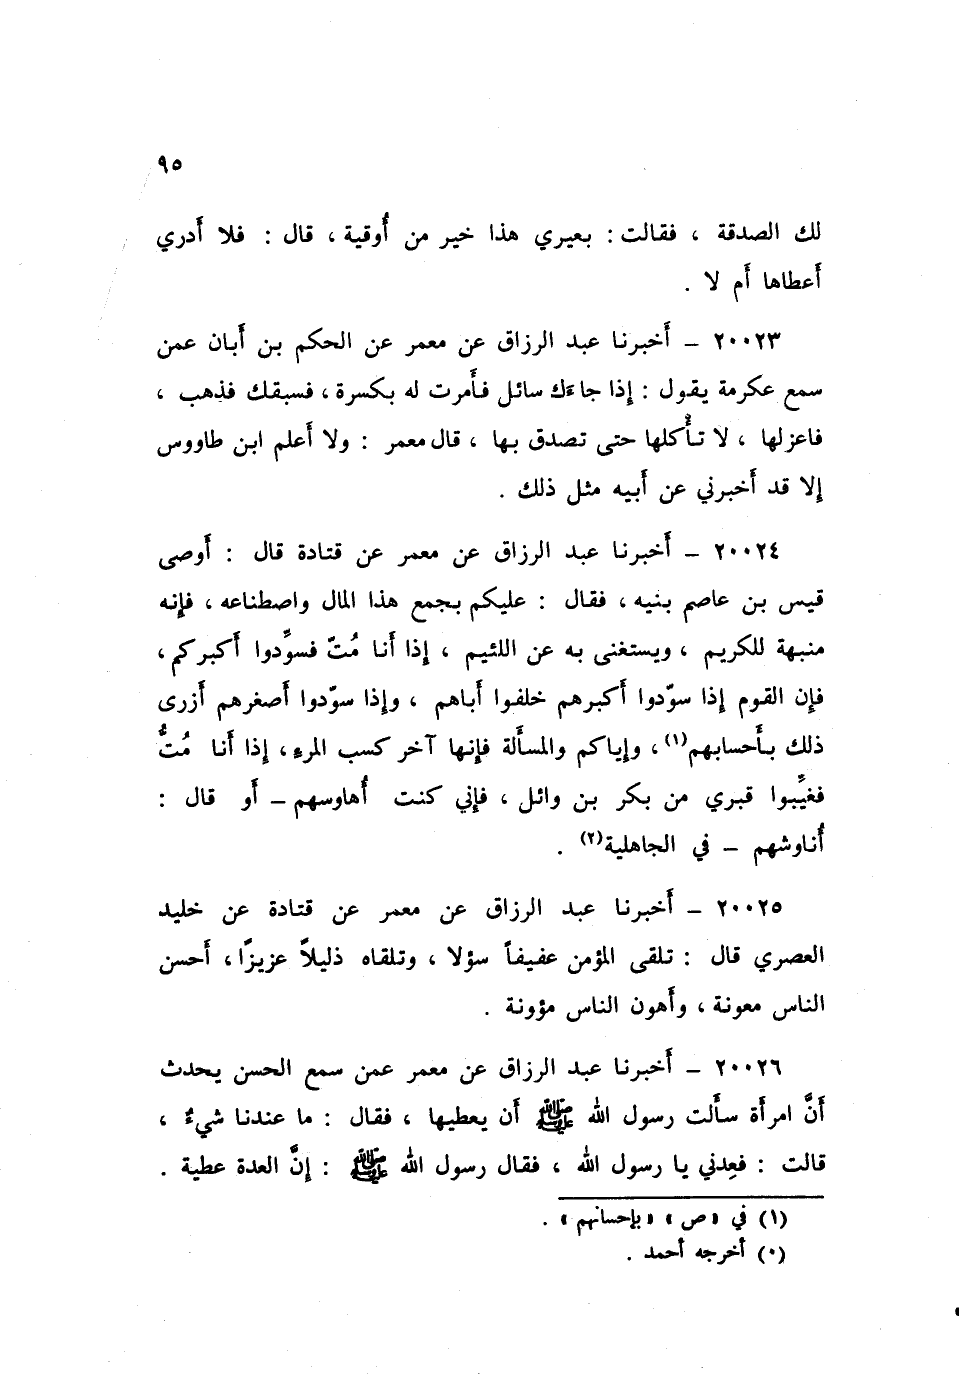 ٩٥
لك الصدقة ، فقالت : بعيري هذا خير من أُوقية ، قال : فلا أَدري
أَعطاها أَم لا .
٢٠٠٢٣ – أَخبرنا عبد الرزاق عن معمر عن الحكم بن أَبان عمن
سمع عكرمة يقول : إذا جاءَك سائل فأَمرت له بكسرة ، فسبقك فذهب ،
فاعزلها ، لا تأْكلها حتى تصدق بها ، قال معمر : ولا أَعلم ابن طاووس
إلا قد أَخبرني عن أَبيه مثل ذلك .
٢٠٠٢٤ – أَخبرنا عبد الرزاق عن معمر عن قتادة قال : أَوصى
قيس بن عاصم بنيه ، فقال : عليكم بجمع هذا المال واصطناعه ، فإنه
منبهة للكريم ، ويستغنى به عن اللئيم ، إذا أَنا مُتّ فسوِّدوا أَكبركم ،
فإن القوم إذا سوّدوا أَكبرهم خلفوا أَباهم ، وإذا سوّدوا أَصغرهم أَزرى
ذلك بأَحسابهم(١) ، وإياكم والمسأَلة فإنها آخر كسب المرء ، إذا أَنا مُتُّ
فغيِّبوا قبري من بكر بن وائل ، فإني كنت أُهاوسهم – أَو قال :
أُناوشهم – في الجاهلية(٢) .
٢٠٠٢٥ – أَخبرنا عبد الرزاق عن معمر عن قتادة عن خليد
العصري قال : تلقى المؤمن عفيفاً سؤلا ، وتلقاه ذليلاً عزيزًا ، أَحسن
الناس معونة ، وأَهون الناس مؤونة .
٢٠٠٢٦ – أَخبرنا عبد الرزاق عن معمر عمن سمع الحسن يحدث
أَنَّ امرأَة سأَلت رسول الله ﷺ أَن يعطيها ، فقال : ما عندنا شيءٌ ،
قالت : فعِدني يا رسول الله ، فقال رسول الله ﷺ : إنَّ العدة عطية .
(١) في « ص » « بإحسانهم » .
(٠) أخرجه أحمد .